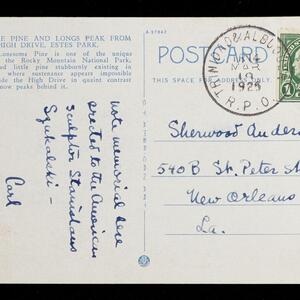 E PINE AND LONGS PEAK FROM
HIGH DRIVE, ESTES PARK.
Lonesome Pine is one of the unique
the Rocky Mountain National Park.
ed little pine stubbornly existing in
where sustenance appears impossible
side the High Drive in quaint contrast
now peaks behind it.
note memorial here
erected to the American
sculptor Stanislaus
Szukalski –
Carl
A-97842
POSTCARD
THIS SPACE FOR ADDRESS ONLY
ALBUQ
1925
R.P.O.
1
Sherwood Anders
540 B St. Peter St
New Orleans
La.